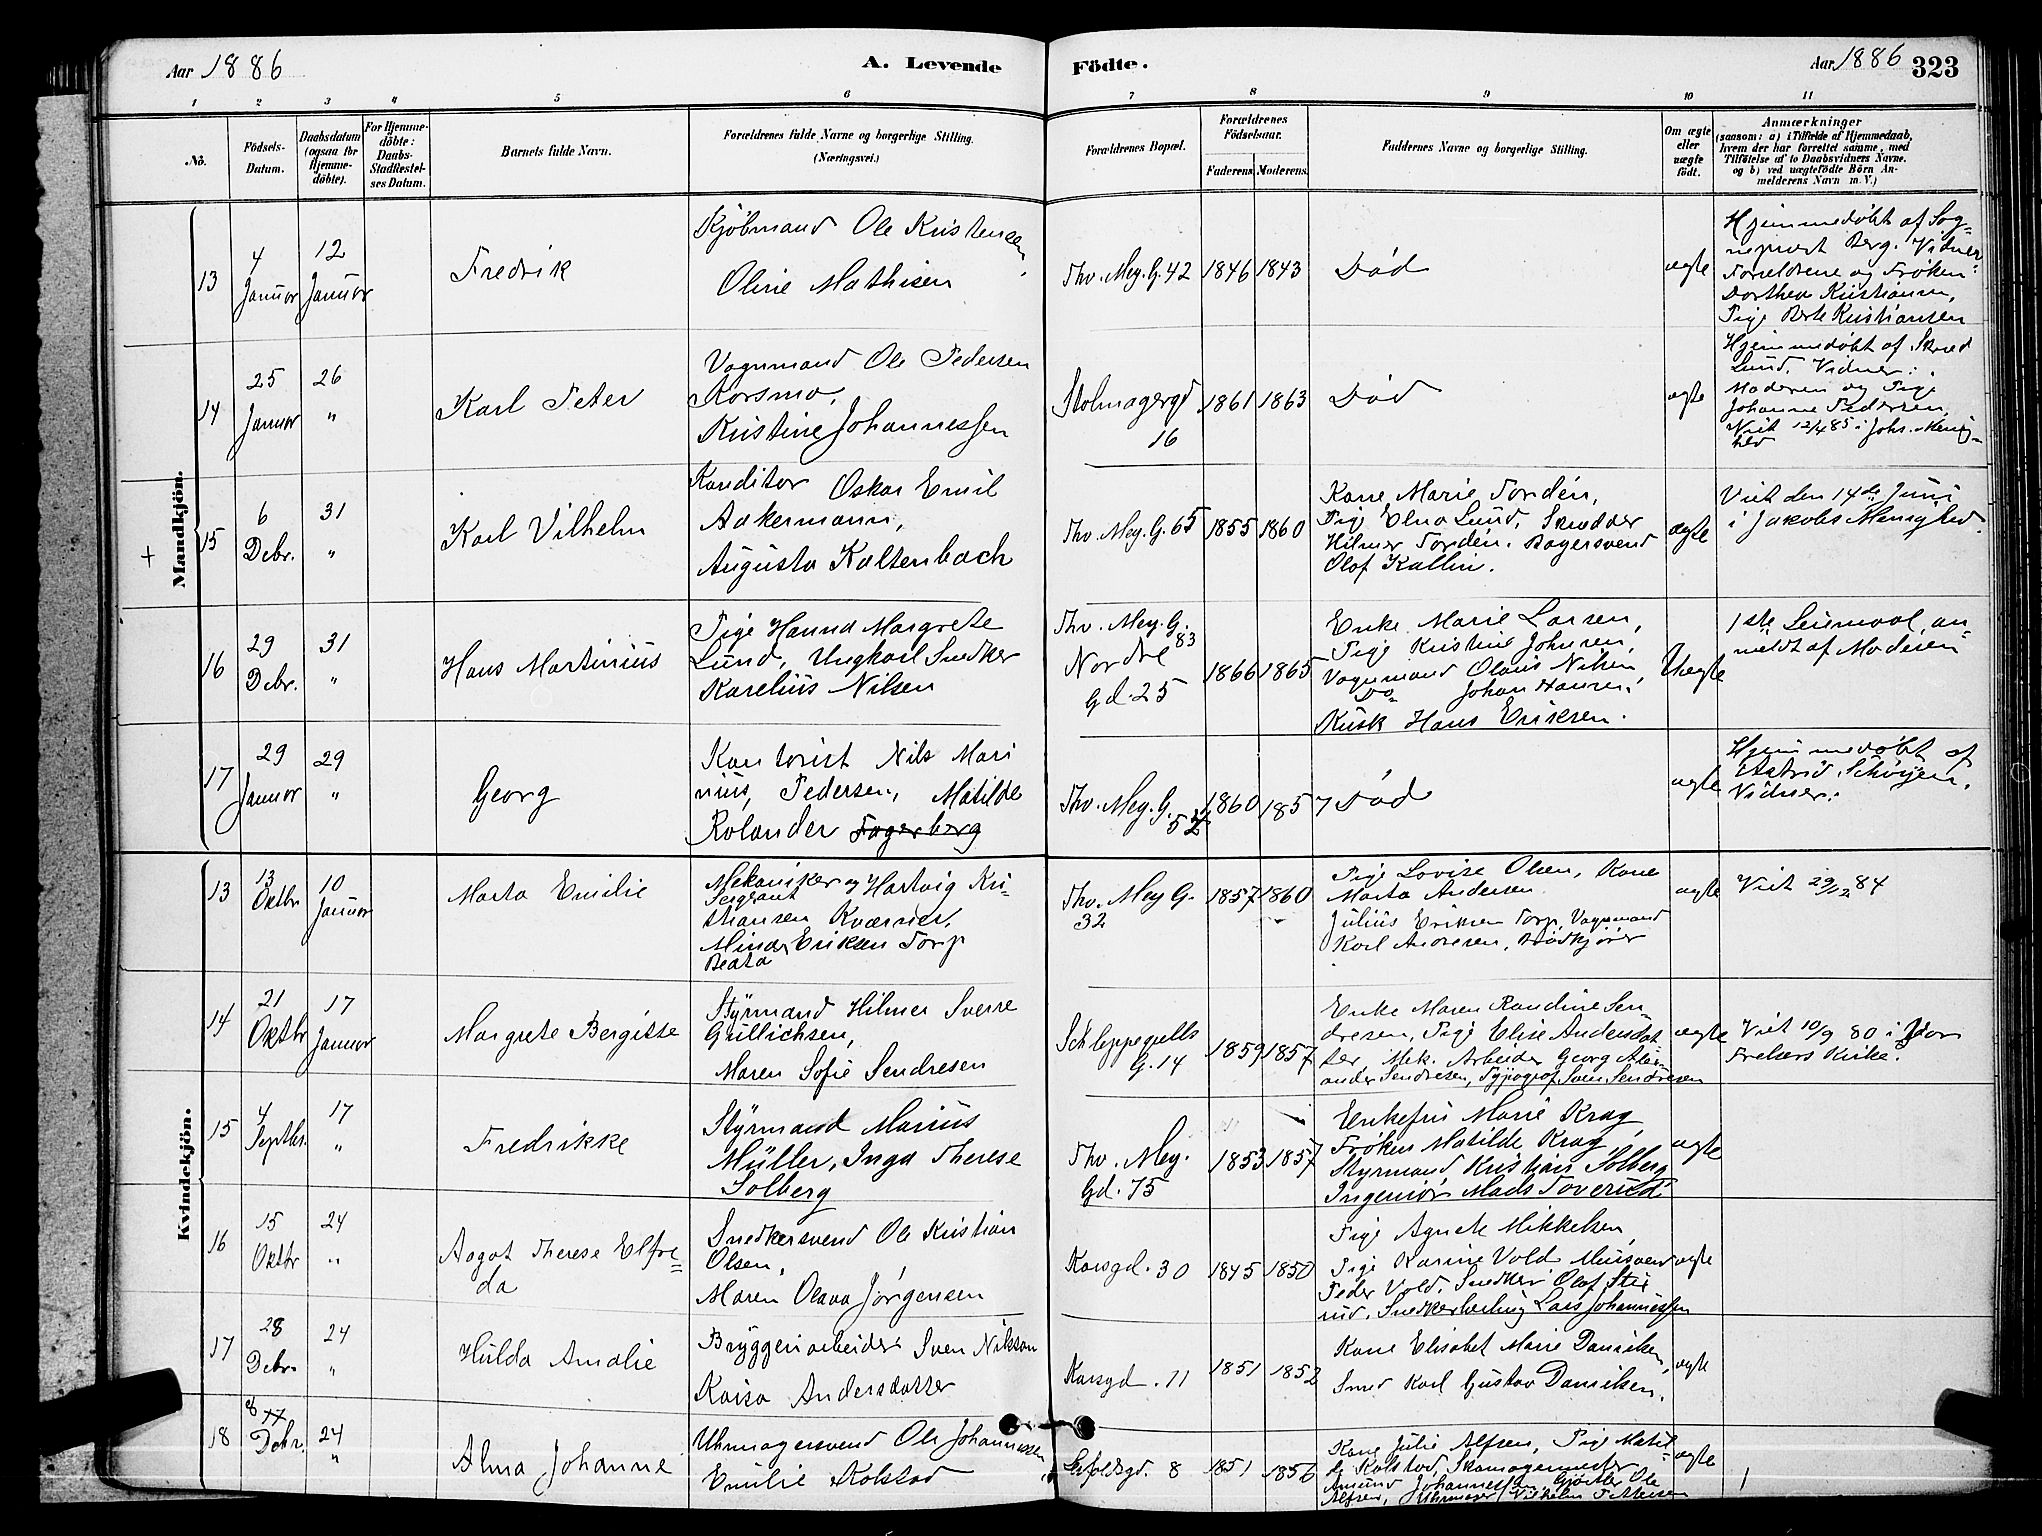 Aar 1886
A. Levende
Födte.
Aar 1886
323
1 2 3 4 5 6 7 8 9 10 11
No.
Födsels-
Datum.
Daabsdatum
(ogsaa for
Hjemme-
döbte).
For Hjemme-
döbte:
Daabs-
Stadfæstel-
ses Datum.
Barnets fulde Navn.
Forældrenes fulde Navne og borgerlige Stilling.
(Næringsvei.)
Forældrenes Bopæl.
Forældrenes
Födselsaar.
Faderens. Moderens.
Faddernes Navne og borgerlige Stilling.
Om ægte
eller
uægte
födt.
Anmærkninger
(saasom: a) i Tilfælde af Hjemmedaab,
hvem der har forrettet samme, med
Tilföielse af to Daabsvidners Navne.
og b) ved uægtefödte Börn An-
melderens Navn m. V.)
Mandkjön.
13
4
Januar
12
Januar
Fredrik
Kjöbmand Ole Kristensen,
Oline Mathisen
Thv. Mey. G. 42
1846
1843
Död
ægte
Hjemmedöbt af Sog-
nepræst Berg. Vidner:
Forældrene og Fröken
Dorthea Kristiansen,
Pige Berte Kristiansen
14
25
Januar
26
"
Karl Peter
Vognmand Ole Pedersen
Korsmo,
Kristine Johannessen
Skolmagergd
16
1861
1863
Död
ægte
Hjemmedöbt af
Lund. Vidner:
Moderen og Pige
Johanne Pedersen,
Viet 12/4 85 i Johs. Menig-
hed
+
15
6
Debr.
31
"
Karl Vilhelm
Konditor Oskar Emil
Aakermann,
Augusta Kaltenbach
Thv. Mey. G. 65
1855
1860
Kone Marie Tordén,
Pige Elna Lund, Skrædder
Hilmer Tordén. Bagersvend
Olof Kallin.
ægte
Viet den 14de Juni
i Jakobs Menighed.
16
29
Debr.
31
"
Hans Martinius
Pige Hanna Margrete
Lund, Ungkarl Snedker
Karelius Nilsen
Thv. Mey. G.
83
Nordre
gd. 25
1866
1865
Enke Marie Larsen,
Pige Kristine Johnsen,
Vognmand Olaus Nilsen,
Do Johan Hansen,
Kusk Hans Eriksen.
Uægte
1ste Leiermaal, an-
meldt af Moderen
17
29
Januar
29
"
Georg
Kontorist Nils Mari
nius Pedersen, Matilde
Rolander Fagerberg
Thv. Mey. G.
52
1860
1857
Död
ægte
Hjemmedöbt af
Astrid Schöyen.
Vidner:
Kvindekjön.
13
13
Oktbr
10
Januar
Marta Emilie
Mekaniker og Hartvig Kri-
Sergeant
stiansen Kværner,
Minda Eriksen Torp
Beata
Thv. Mey G.
32
1857
1860
Pige Lovise Olsen, Kone
Marta Andersen
Julius Eriksen Torp, Vognmand
Karl Andresen, Bödkjörer
ægte
Viet 29/12 84
14
21
Oktbr
17
Januar
Margrete Bergitte
Styrmand Hilmer Sverre
Gullichsen,
Maren Sofie Sendresen
Schleppegrells
G. 14
1859
1857
Enke Maren Randine Sen-
dresen, Pige Elise Andersdat
ter, Mek. Arbeider Georg Alex-
ander Sendresen, Typograf Sven Sendresen
ægte
Viet 10/9 80 i Vor
Frelsers Kirke.
15
4
Septbr.
17
"
Fredrikke
Styrmand Marius
Müller, Inga Therese
Solberg
Thv. Mey.
Gd. 75
1853
1857
Enkefru Marie Krag,
Fröken Matilde Krag,
Styrmand Kristian Solberg
Ingeniör Mads Toverud.
ægte
16
15
Oktbr
24
"
Aagot Therese Elfre-
da
Snedkersvend Ole Kristian
Olsen,
Maren Olava Jörgensen
Korsgd. 30
1845
1850
Pige Agnete Mikkelsen,
Pige Karine Vold Mursvend
Peder Vold, Snedker Olof Ste
rud, Snedkerlærling Lars Johannessen
ægte
17
28
Debr.
24
"
Hulda Amalie
Bryggeriarbeider Sven Nilsson
Kaisa Andersdatter
Korsgd. 11
1851
1852
Kone Elisabet Marie Danielsen,
Smed Karl Gustav Danielsen.
ægte
18
8
Debr.
24
"
Alma Johanne
Uhrmagersvend Ole Johannessen
Emilie Kolstad
gd. 8
1851
1856
Kone Julie Alfsen, Pige Matil
de Kolstad, Skomagermester
Amund Johannessen, Gjörtler Ole
Alfsen, Uhrmager Vilhelm Pettersen
ægte